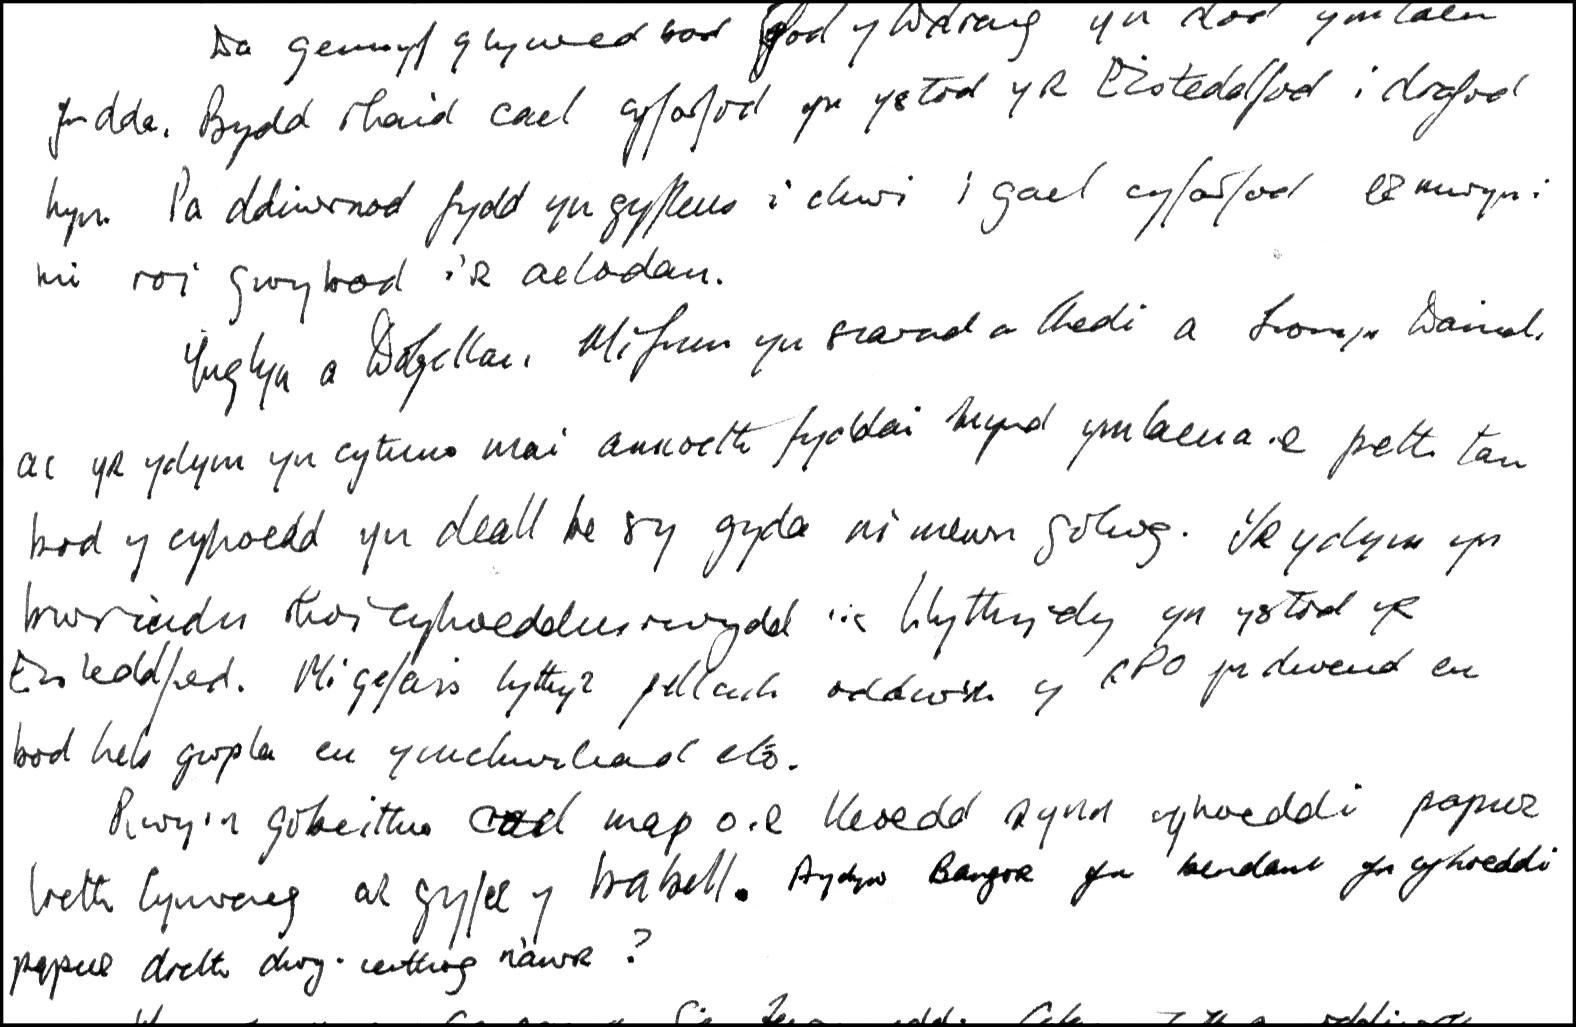 Da gennyf glywed bod y Wdrag yn dod ymlaen
yn dda. Bydd rhaid cael cyfarfod yn ystod yr Eisteddfod i drafod
hyn. Pa ddiwrnod fydd yn gyfleus i chwi i gael cyfarfod er mwyn i
mi roi gwybod i'r aelodau.
Ynglyn a Dolgellau. Mi fum yn siarad a Hedi a Gwomyn Dainel.
ac yr ydym yn cytuno mai annoeth fyddai mynd ymlaen a'r peth tan
bod y cyhoedd yn deall be sy gyda ni mewn golwg. Yr ydym yn
bwriadu rhoi cyhoeddusrwydd i'r llythyrdy yn ystod yr
Eisteddfod. Mi gefais lythyr pellach oddiwrth y GPO yn dweud eu
bod heb gwpla eu ymchwiliad eto.
Rwy'n gobeithio cael map o'r lleoedd sy'n cyhoeddi papur
treth Cymraeg ar gyfer y babell. Aydyw Bangor yn bendant yn cyhoeddi
papur dreth dwy-ieithog nawr?